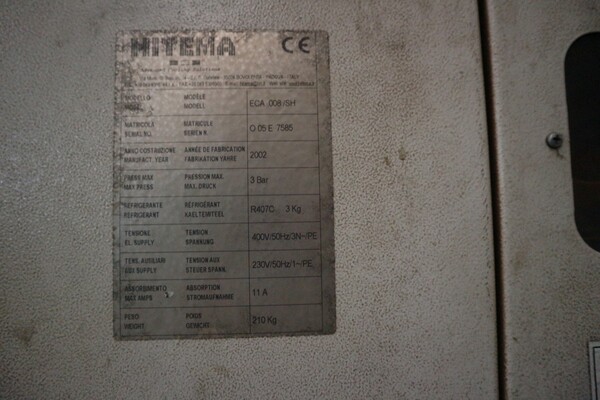 HITEMA CE
MODELLO MODÈLE
MODEL MODELL ECA .008/SH
MATRICOLE MATRICULE
SERIAL NO. SERIEN N. O 05 E 7585
ANNO COSTRUZIONE ANNÉE DE FABRICATION
MANUFACT. YEAR FABRIKATION YÄHRE 2002
PRESS MAX PRESSION MAX.
MAX PRESS MAX. DRUCK 3 Bar
REFRIGERANTE RÉFRIGÉRANT
REFRIGERANT KAELTEMITEEL R407C 3 Kg
TENSIONE TENSION
EL. SUPPLY SPANNUNG 400V/50Hz/3N~/PE
TENS. AUXILIARI TENSION AUX
SUPPLY STEUER SPANN. 230V/50Hz/1~/PE
ASSORBIMENTO ABSORPTION
MAX AMPS STROMAUFNAHME 11 A
PESO POIDS
WEIGHT GEWICHT 210 Kg